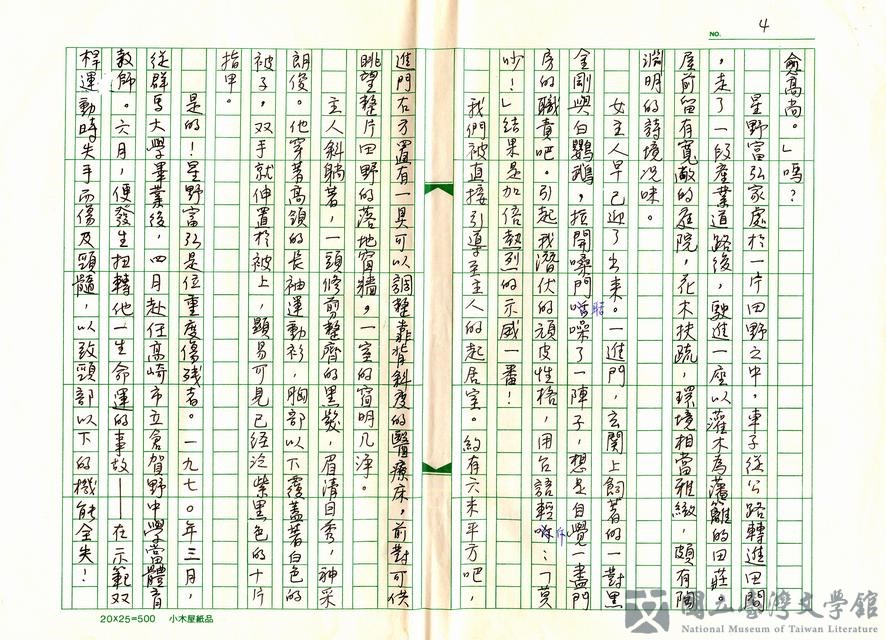 NO. 4
愈高尚。」嗎?
星野富弘家處於一片田野之中,車子從公路轉進田間
,走了一段產業道路後,駛進一座以灌木為藩籬的田莊。
屋前留有寬敞的庭院,花木扶疏,環境相當雅緻,頗有陶
淵明的詩境況味。
女主人早已迎了出來。一進門,玄關上飼著的一對黑
金剛與白鸚鵡,拉開嗓門聒噪了一陣子,想是自覺一盡門
房的職責吧。引起我潛伏的頑皮性格,用台語輕斥:「莫
吵!」結果是加倍熱烈的示威一番!
我們被直接引導至主人的起居室。約有六米平方吧,
進門右方置有一具可以調整靠背斜度的醫療床,前對可供
眺望整片田野的落地窗牆,一室的窗明几淨。
主人斜躺著,一頭修剪整齊的黑髮,眉清目秀,神采
朗俊。他穿著高領的長袖運動衫,胸部以下覆蓋著白色的
被子,双手就伸置於被上,顯易可見已經泛紫黑色的十片
指甲。
是的!星野富弘是位重度傷殘者。一九七〇年三月,
從群馬大學畢業後,四月赴任高崎市立倉賀野中學當體育
教師。六月,便發生扭轉他一生命運的事故——在示範双
桿運動時失手而傷及頸髓,以致頸部以下的機能全失!
20×25=500 小木屋紙品
國立臺灣文學館
National Museum of Taiwan Literature